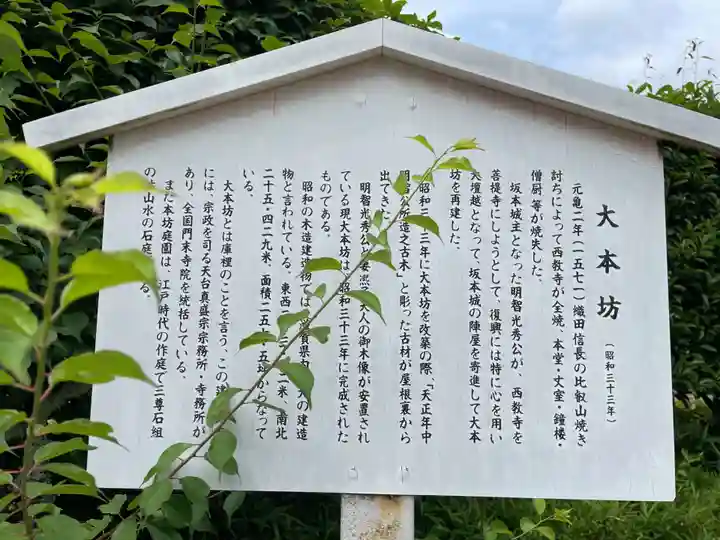 大本坊
（昭和三十三年）
元亀二年（一五七一）織田信長の比叡山焼き
討ちによって西教寺が全焼、本堂・丈室・鐘楼・
僧厨等が焼失した。
坂本城主となった明智光秀公が、西教寺を
菩提寺にしようとして、復興には特に心を用い
大壇越となって、坂本城の陣屋を寄進して大本
坊を再建した。
昭和三十三年に大本坊を改築の際、「天正年中
明智公所造之古木」と彫った古材が屋根裏から
出てきた
明智光秀公 夫人の御木像が安置され
ている現大本坊は 昭和三十三年に完成された
ものである。
昭和の木造建造物では 賀県内 大の建造
物と言われている。東西 二米、南北
二十五・四二九米、面積二 五坪からなって
いる。
大本坊とは庫裡のことを言う。この
には、宗政を司る天台真盛宗宗務所・寺務所が
あり、全国門末寺院を統括している。
また本坊庭園は、江戸時代の作庭で三尊石組
の 山水の石庭 る。